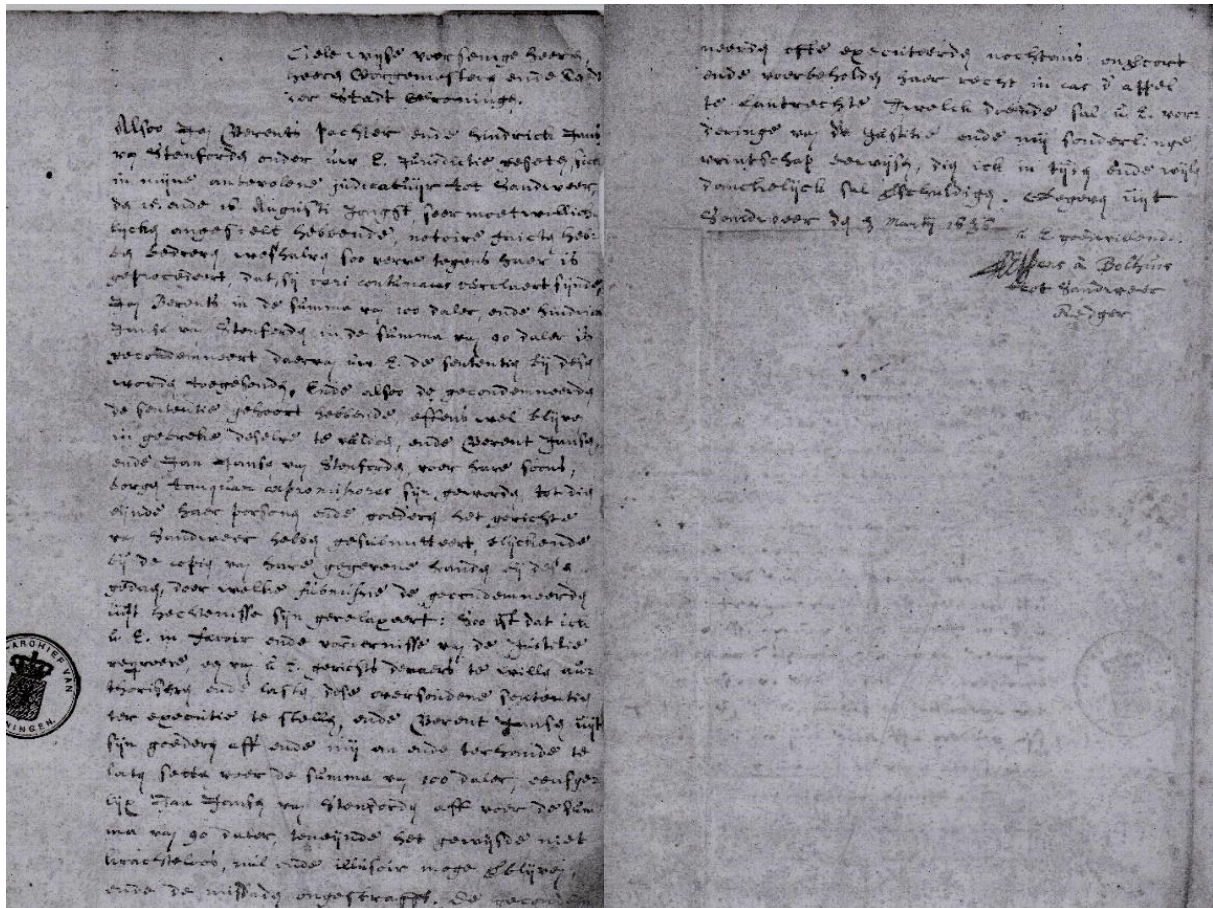 Edele wijse voorsenige heeren
heeren Borgemesteren ende Raedt
der Stadt Groningen.
Alsoo Jan Berents Pachter ende Hindrick Jansen
van Stenforden onder uw E. Jurisdictie geseten, sich
in mijne anbevolene judicatuijr tot Sandweer,
den 15 ende 16 Augusti Jongst seer moetwillich-
lijcken angestelt hebbende, notoire
bedreven weshalven soo verre tegens haer is
geprocedeert, dat sij veri contumaces verclaert sijnde,
Jan Berents in de summa van 100 daler, ende Hindrick
Jansen van Stenforden in de summa van 90 daler is
gecondemneert daervan uw E. de sententien bij desen
worden toegesonden. Ende alsoo de gecondemneerden
de sententie gehoort hebbende, effenswel blijven
in gebreke deselve te voldoen, ende Berent Jansen,
ende Jan Jansen van Stenforden, voer hare soons,
borgen tanquam expromissores sijn geworden tot dien
eijnde haer persoonen ende goederen het gerichte
van Sandweer hebben gesubmitteert, blijckende
bij de copien van hare gegevene handen bij desen
gedaen, door welke submissie de gecondemneerden
uijt hechtenisse sijn gerelaxeert: Soo ist dat ick
U E. in favoir ende der Justitie
requirere, en van U E. gerichts te willen aut-
thoriseren ende lasten dese oversondene sententien
ter executie te stellen, ende Berent Jansen uijt
sijn goederen aff ende mij an ende terhande te
laten setten voer de summa van 100 daler, eensge-
lijx Jan Jansen van Stenforden aff voer de sum-
ma van 90 daler, teneijnde het gewijsde niet
krachteloos, nul ende illusoir moge verblijven,
ende de misdaden ongestrafft. De gecondem-
neerden ofte executeerden nochtans onvercort
ende voerbeholden haer recht in cas d'appel
te Landtrechte. Twelck diende sal U E. vor-
deringe van de Justitie ende mij sonderlinge
vrintschap bewijsen, dien ick in tijden ende wijlen
danckelijck sal verschuldigen. Gegeven uijt
Sandweer den 3 Martij 163
U E. goedwillende
à Bolhuis
tot Sandweer
Redger
ARCHIEF VAN
NINGEN